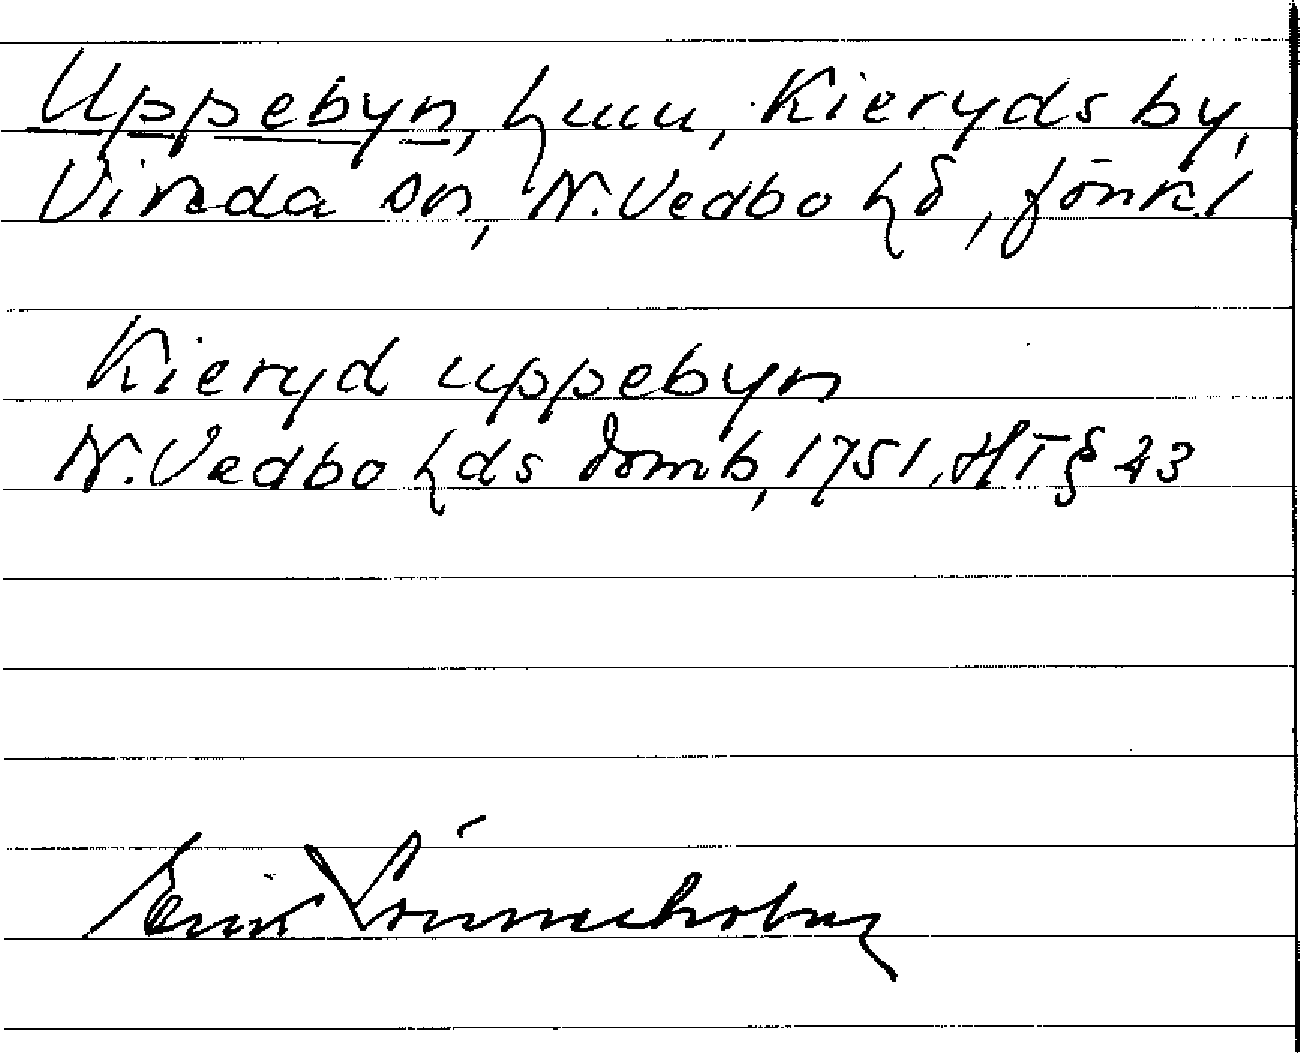 Uppebyn, hmn, Kieryds by,
Vireda sn, N. Vedbo hd, Jönk.l
Kieryd uppebyn
N. Vedbo hds domb, 1751, HT § 43
Erik